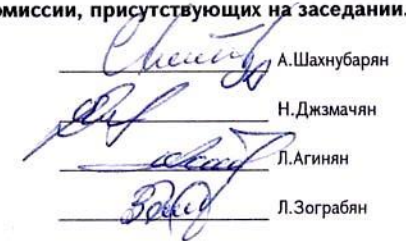 омиссии, присутствующих на заседании.
А.Шахнубарян
Н.Джзмачян
Л.Агинян
Л.Зограбян